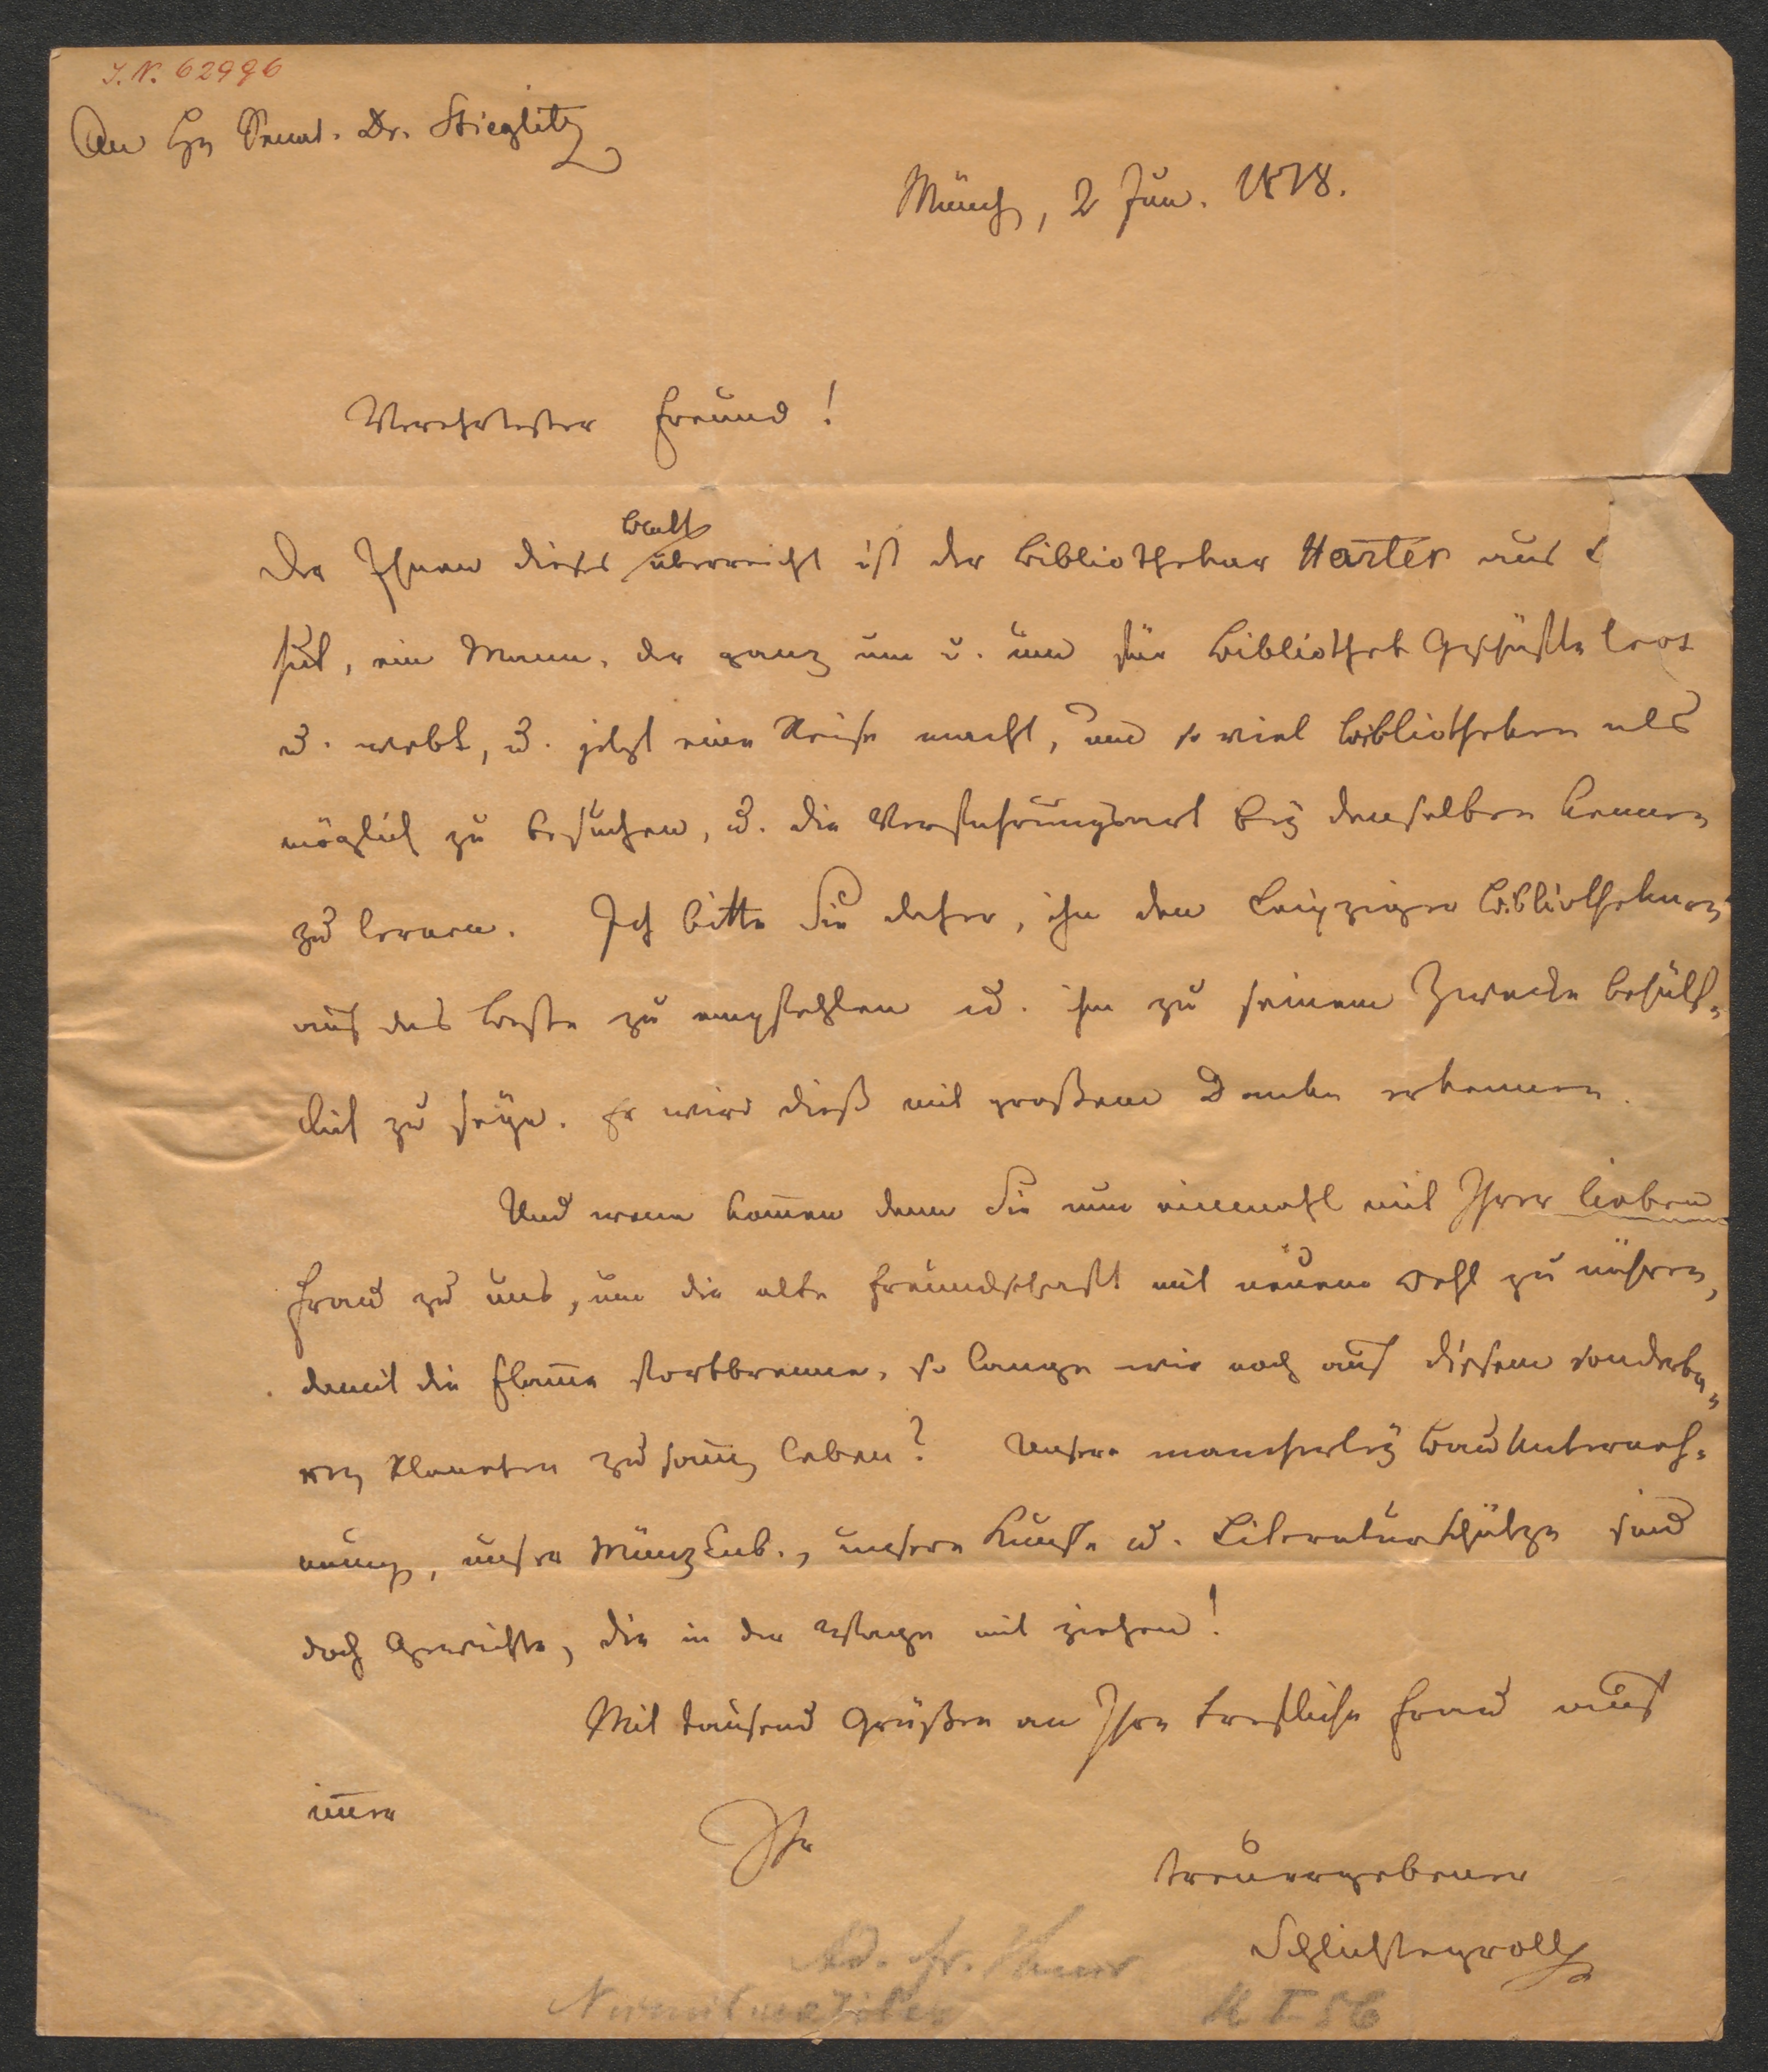 I. N. 62996
An Hn Senat. Dr. Stieglitz
Münch, 2 Jun. 1818.
Verehrtester Freund!
Der Ihnen dieses Blatt überreicht ist der Bibliothekar Harter aus L
hut, ein Mann, der ganz um u. um für Bibliothek Geschäfte lebt
u. webt, u. jetzt eine Reise macht, um so viel Bibliotheken als
möglich zu besuchen, u. die Verfahrungsart bey denselben kennen
zu lernen. Ich bitte Sie daher, ihn den Leipziger Bibliothekaren
auf das Beste zu empfehlen u. ihm zu seinem Zwecke behülf-
lich zu seyn. Er wird dieß mit großem Danke erkennen.
Und wenn kom̅en denn Sie nun einmahl mit Ihrer lieben
Frau zu uns, um die alte Freundschaft mit neuem Oehl zu nähren,
damit die Flam̅e fortbrenne, so lange wir noch auf diesem sonderba-
ren Planeten zusam̅en leben? Unsere mancherley Bau Unterneh-
mungen, unser Münz Cab., unsere Kunst u. Literaturschätze sind
doch Gewichte, die in der Wage mit ziehen!
Mit tausend Grüßen an Ihre treffliche Frau auf
im̅er
Ihr
treuergebener
Schlichtegroll
Ad. Fr.
Numismatiker